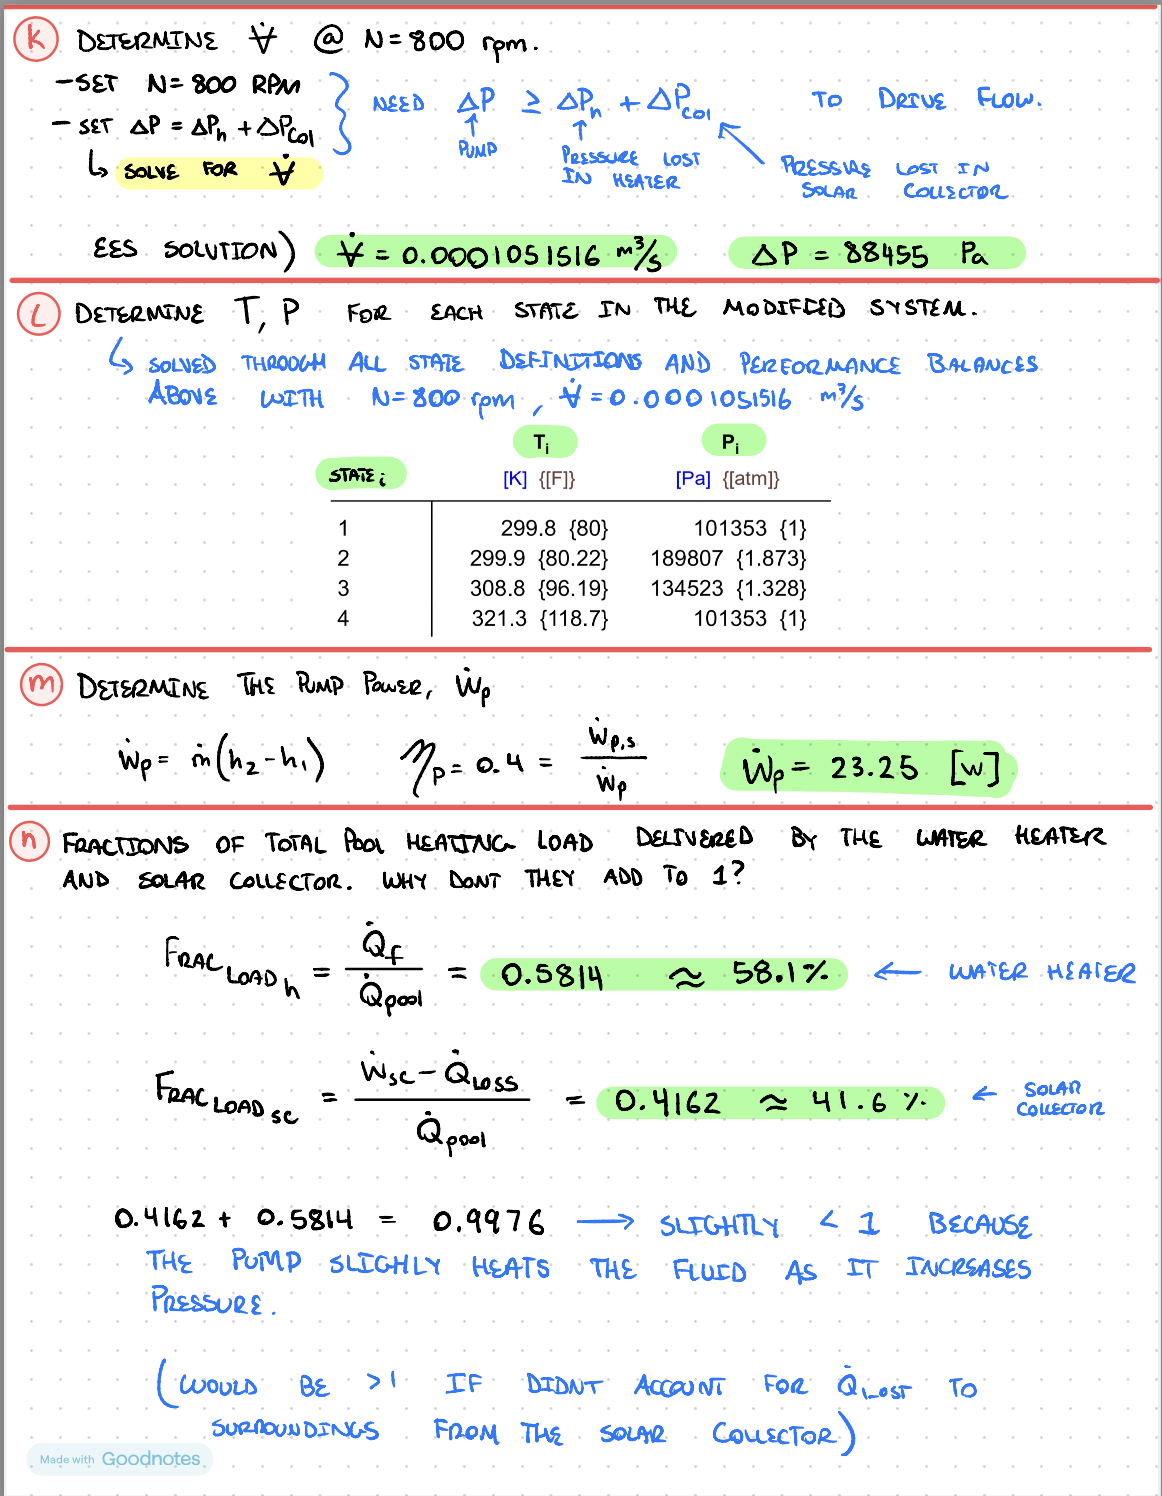 K DETERMINE V̇ @ N = 800 rpm.
- SET N = 800 RPM
- SET ΔP = ΔPh + ΔPcol
↳ SOLVE FOR V̇
NEED ΔP ≥ ΔPh + ΔPcol TO DRIVE FLOW.
PUMP
PRESSURE LOST
IN HEATER
PRESSURE LOST IN
SOLAR COLLECTOR
EES SOLUTION) V̇ = 0.0001051516 m³/s ΔP = 88455 Pa
L DETERMINE T, P FOR EACH STATE IN THE MODIFIED SYSTEM.
↳ SOLVED THROUGH ALL STATE DEFINITIONS AND PERFORMANCE BALANCES
ABOVE WITH N = 800 rpm, V̇ = 0.0001051516 m³/s
STATE i Ti Pi
[K] {[F]} [Pa] {[atm]}
1 299.8 {80} 101353 {1}
2 299.9 {80.22} 189807 {1.873}
3 308.8 {96.19} 134523 {1.328}
4 321.3 {118.7} 101353 {1}
m DETERMINE THE PUMP POWER, Ẇp
Ẇp = ṁ(h2 - h1) ηp = 0.4 = Ẇp,s / Ẇp Ẇp = 23.25 [W]
n FRACTIONS OF TOTAL POOL HEATING LOAD DELIVERED BY THE WATER HEATER
AND SOLAR COLLECTOR. WHY DONT THEY ADD TO 1?
FRAC LOAD h = Q̇f / Q̇pool = 0.5814 ≈ 58.1% ← WATER HEATER
FRAC LOAD SC = Ẇsc - Q̇LOSS / Q̇pool = 0.4162 ≈ 41.6 % ← SOLAR COLLECTOR
0.4162 + 0.5814 = 0.9976 → SLIGHTLY < 1 BECAUSE
THE PUMP SLIGHLY HEATS THE FLUID AS IT INCREASES
PRESSURE.
(WOULD BE >1 IF DIDNT ACCOUNT FOR Q̇LOST TO
SURROUNDINGS FROM THE SOLAR COLLECTOR)
Made with Goodnotes